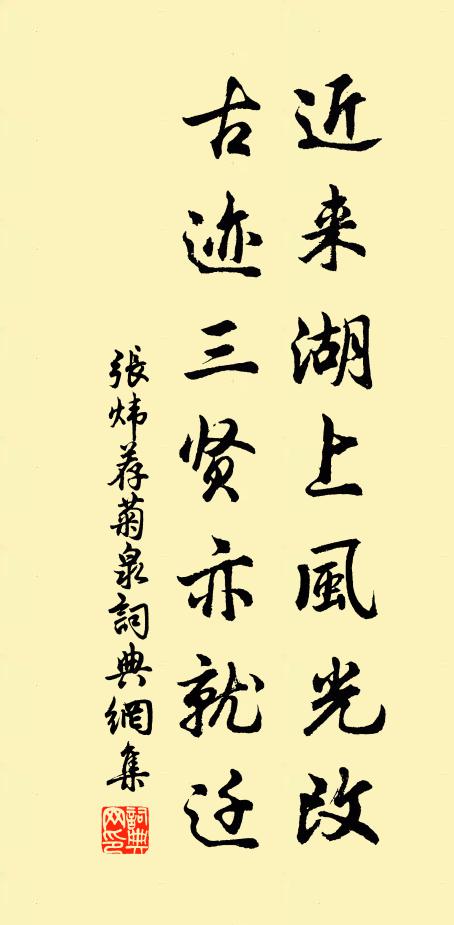 近来湖上風光改
古迹三贤亦就迁
張炜荐菊泉詞典網集
詞典網印